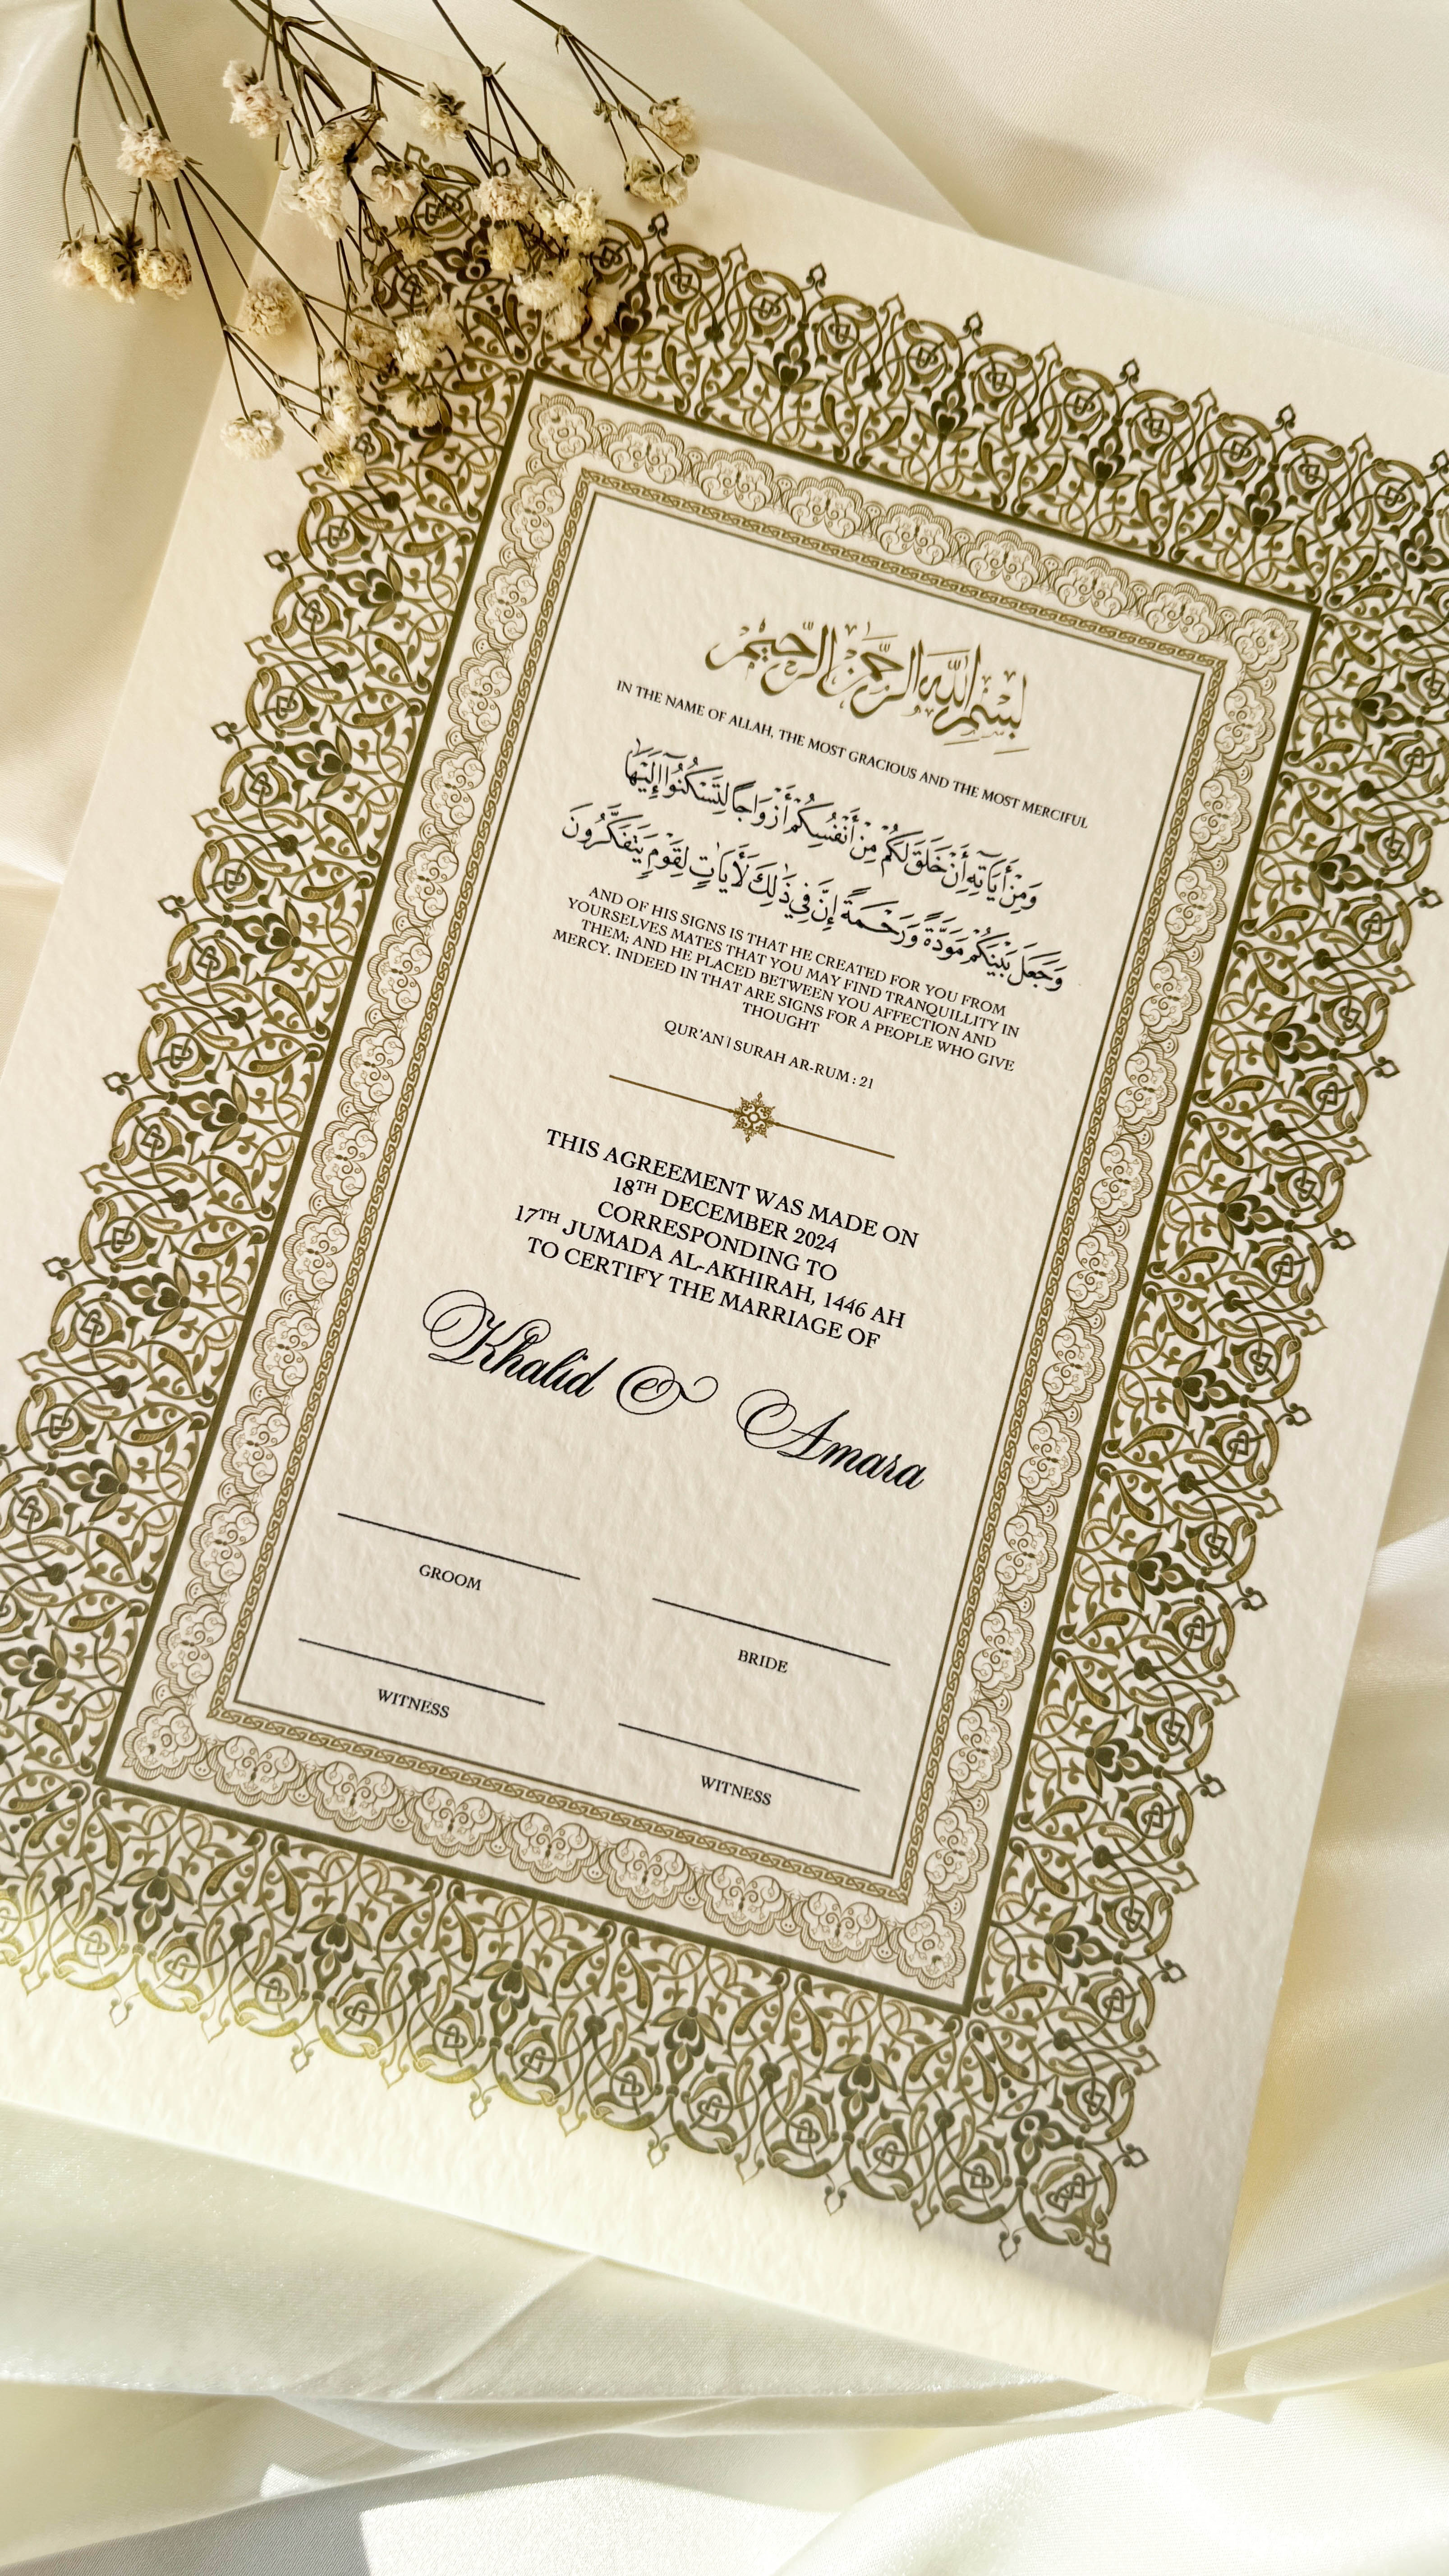 بِسْمِ اللَّهِ الرَّحْمَنِ الرَّحِيمِ
IN THE NAME OF ALLAH, THE MOST GRACIOUS AND THE MOST MERCIFUL
وَمِنْ أَيَاتِهِ أَنْ خَلَقَ لَكُمْ مِنْ أَنْفُسِكُمْ أَزْوَاجًا لِتَسْكُنُوا إِلَيْهَا
وَجَعَلَ بَيْنَكُمْ مَوَدَّةً وَرَحْمَةً إِنَّ فِي ذَلِكَ لَأَيَاتٍ لِقَوْمٍ يَتَفَكَّرُونَ
AND OF HIS SIGNS IS THAT HE CREATED FOR YOU FROM
YOURSELVES MATES THAT YOU MAY FIND TRANQUILLITY IN
THEM; AND HE PLACED BETWEEN YOU AFFECTION AND
MERCY. INDEED IN THAT ARE SIGNS FOR A PEOPLE WHO GIVE
THOUGHT
QUR'AN | SURAH AR-RUM : 21
THIS AGREEMENT WAS MADE ON
18TH DECEMBER 2024
CORRESPONDING TO
17TH JUMADA AL-AKHIRAH, 1446 AH
TO CERTIFY THE MARRIAGE OF
Khalid & Amara
GROOM
BRIDE
WITNESS
WITNESS